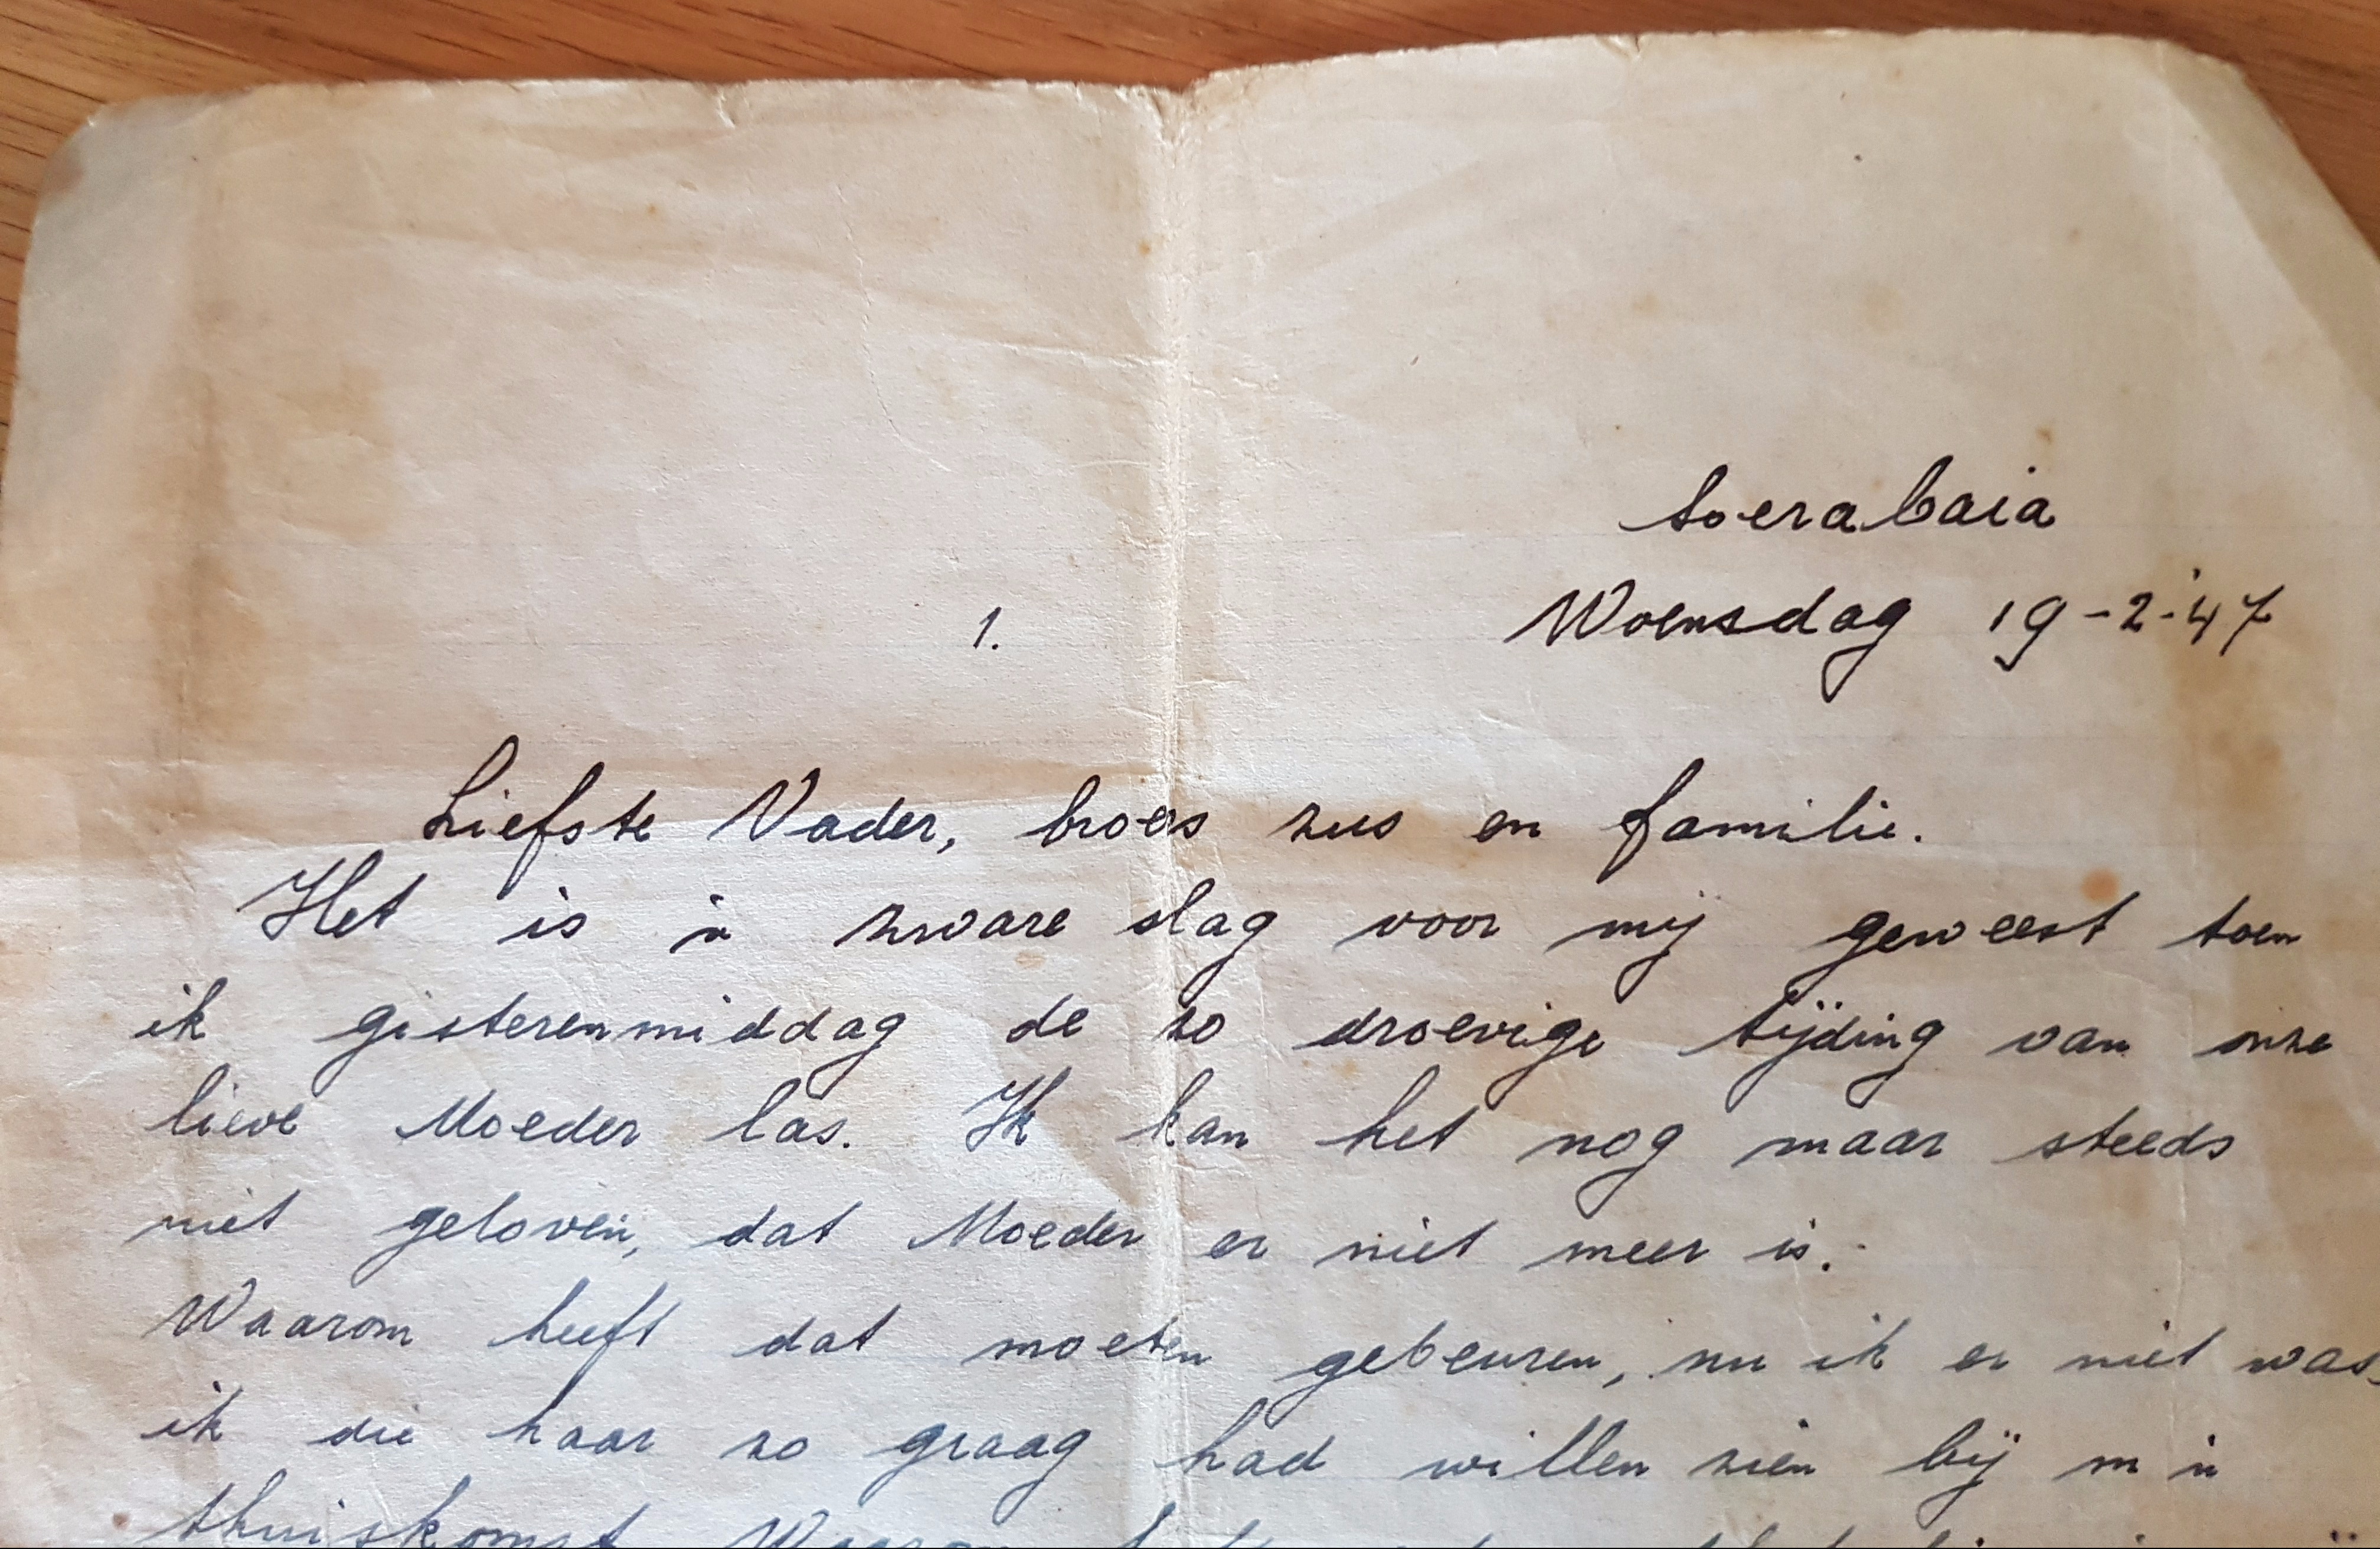 Soerabaia
1. Woensdag 19-2-'47
Liefste Vader, broers zus en familie.
Het is 'n zware slag voor mij geweest toen
ik gisterenmiddag de zo droevige tijding van onze
lieve Moeder las. Ik kan het nog maar steeds
niet geloven, dat Moeder er niet meer is.
Waarom heeft dat moeten gebeuren, nu ik er niet was,
ik die haar zo graag had willen zien bij m'n
thuiskomst